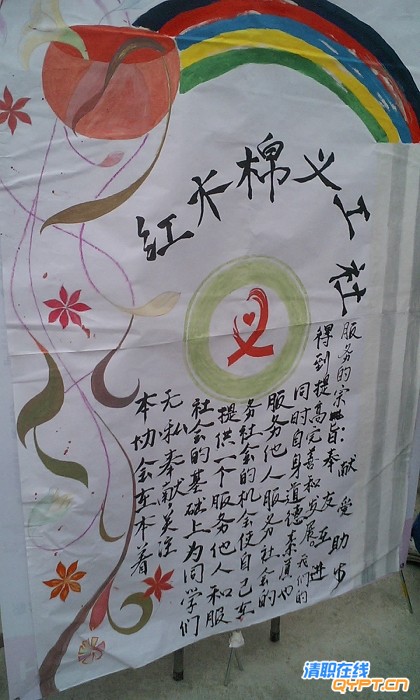 红木棉义工社
义
本协会在本着
无私奉献,关注
社会的基础上为同学们
提供一个服务他人和服
务社会的机会使自己在
服务他人服务社会的
同时自身道德素质也
得到提高完善和发展。我们的
服务的宗旨:奉献 友爱 互助 进步
清职在线
QYPT.CN